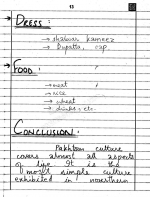 13
→ DRESS :
→ shalwar kameez
→ Dupatta, cap.
→ FOOD :
→ meat
→ rice
→ wheat
→ drinks, etc.
CONCLUSION :
Pakhtoon culture
covers almost all aspects
of life. It is the
most simple culture
exhibited in northern